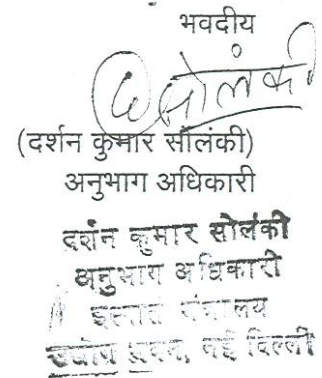 भवदीय
सोलंकी
(दर्शन कुमार सौलंकी)
अनुभाग अधिकारी
दर्शन कुमार सोलंकी
अनुभाग अधिकारी
इस्पात मंत्रालय
उद्योग भवन, नई दिल्ली